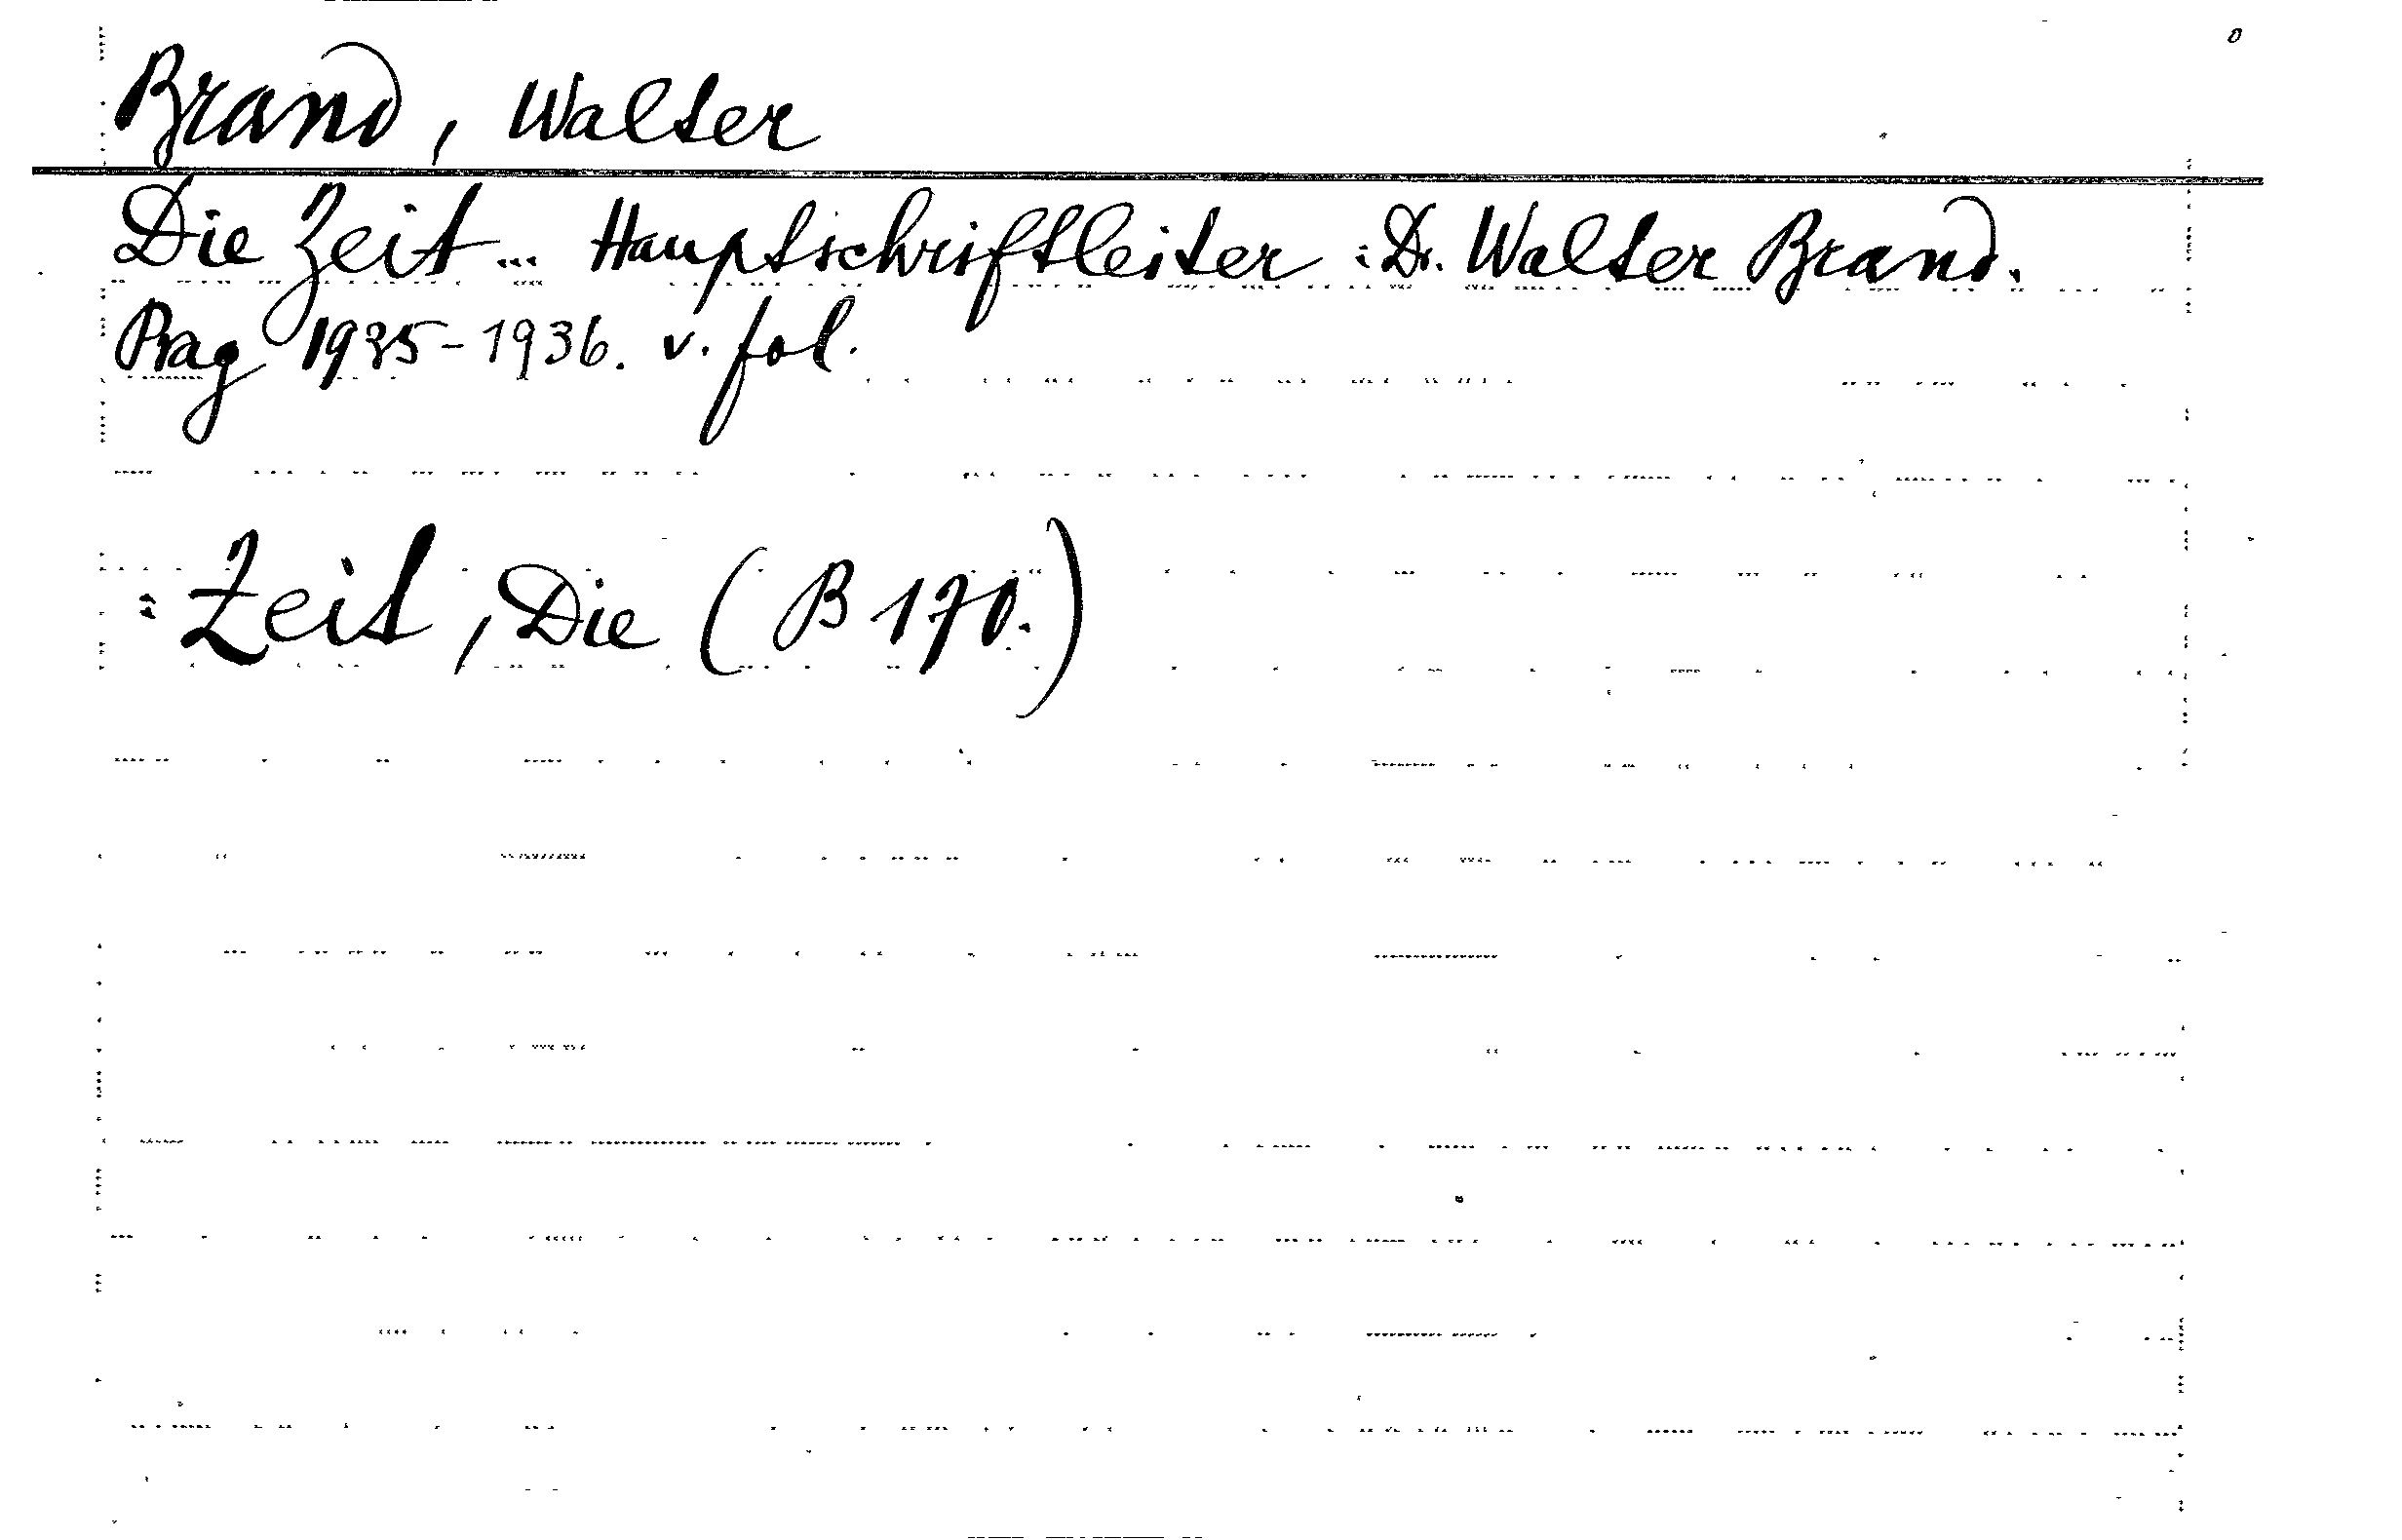 Brand, Walter
Die Zeit... Hauptschriftleiter: Dr. Walter Brand.
Prag 1935-1936. v. fol.
: Zeit, Die (B 170.)